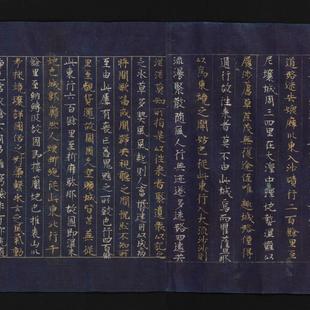 道路迷失媲摩川東入沙磧行二百餘里至
尼壤城周三四里在大澤中澤地熱濕難以
履涉蘆草荒茂無復途徑唯趣城路僅得
通行故往來者莫不由此城焉而瞿薩旦那
以為東境之關防也從此東行入大流沙沙則
流漫聚散隨風人行無迹遂多迷路四遠茫
茫莫知所指是以往來者聚遺骸以記之
乏水草多熱風風起則人畜惛迷因以成病
時聞歌嘯或聞號哭視聽之間怳然不知所
至由此屢有喪亡蓋鬼魅之所致也行四百餘
里至覩貨邏故國國久空曠城皆荒蕪從
此東行六百餘里至折摩馱那故國即涅末
地也城郭巋然人煙斷絕從此東北行千
餘里至納縛波故國即樓蘭地也推表山川
考採境壤詳國俗之剛柔繫水土之風氣動